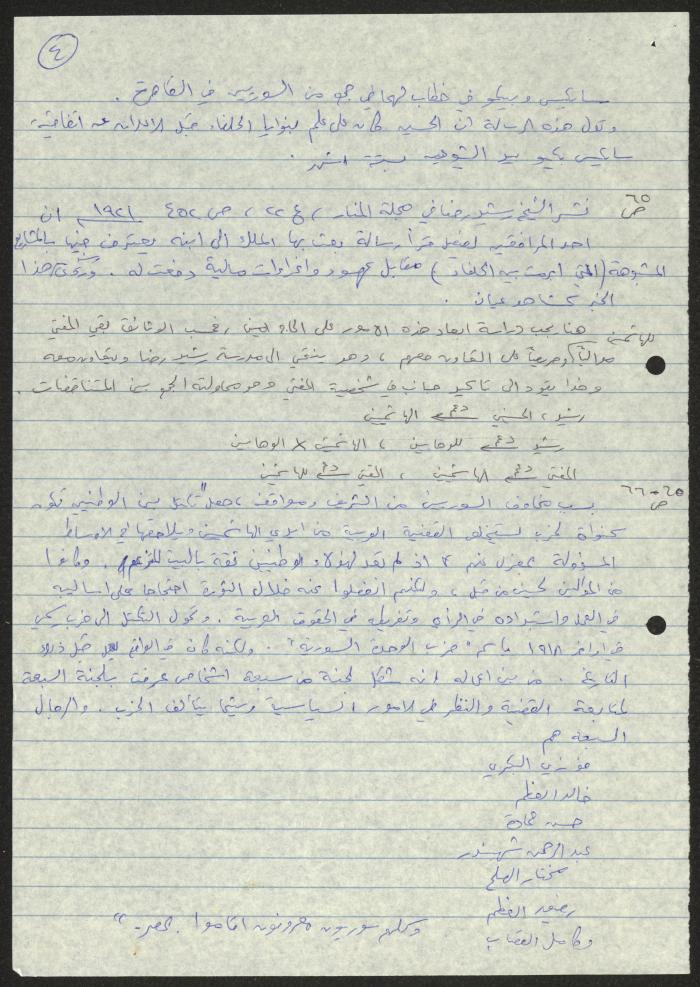 ٤
سايكس وبيكو في خطاب لهما في جمع من السوريين في القاهرة .
وتدل هذه الرسالة أن الحسين كان على علم بنوايا الحلفاء قبل الاعلان عن اتفاقية
سايكس بيكو بيد الشيوعيين بستة اشهر .
ص ٦٥
نشر الشيخ رشيد رضا في مجلة المنار ، ع ٢٢ ، ص ٤٥٢ ١٩٢١ ان
احد المرافقين لفيصل قرأ رسالة بعث بها الملك الى ابنه يعترف فيها بالمشاريع
المشبوهة (التي ابرمت بين الحلفاء) مقابل عهود واغراءات مالية دفعت له . هذا
الخبر كشاهد عيان .
هنا يجب دراسة ابعاد هذه الامور على الحاج امين ، فحسب الوثائق بقي المفتي
للهاشميين
على التعاون معهم ، وهو ينتمي الى مدرسة رشيد رضا ويتعاون معه
وهذا يقود الى تأكيد جانب في شخصية المفتي وهو محاولته الجمع بين المتناقضات .
رشيد ، الحسيني دعم الهاشميين
رشيد دعم للوهابيين ، الهاشميين X الوهابيين
المفتي دعم الهاشميين ، المفتي دعم للهاشميين
ص ٦٥-٦٦
بسبب مخاوف السوريين من الشريف ومواقفه ، حصل "تكتل بين الوطنيين تكون
كنواة لحزب يستخلص القضية العربية من ايدي الهاشميين ويلاحقها في الاوساط
المسؤولة بمعزل عنهم اذ لم تعد لهؤلاء الوطنيين ثقة بالبيت . وكانوا
من الموالين لحسين من قبل ، ولكنهم انفصلوا عنه خلال الثورة احتجاجا على اساليبه
في العمل واستبداده في الرأي وتفريطه في الحقوق العربية . وتحول التكتل الى حزب سري
في اواخر ١٩١٨ باسم "حزب الوحدة السورية" . ولكنه كان في الواقع قبل ذلك
التاريخ . من بين اعماله انه شكل لجنة من سبعة اشخاص عرفت بلجنة السبعة
لمتابعة القضية والنظر في الامور السياسية ريثما يتألف الحزب . والرجال
السبعة هم
فوزي البكري
خالد العظم
حسن حمادة
عبد الرحمن شهبندر
مختار الصلح
رفيق العظم
وكامل القصاب
وكلهم سوريون معروفون اقاموا بمصر . "